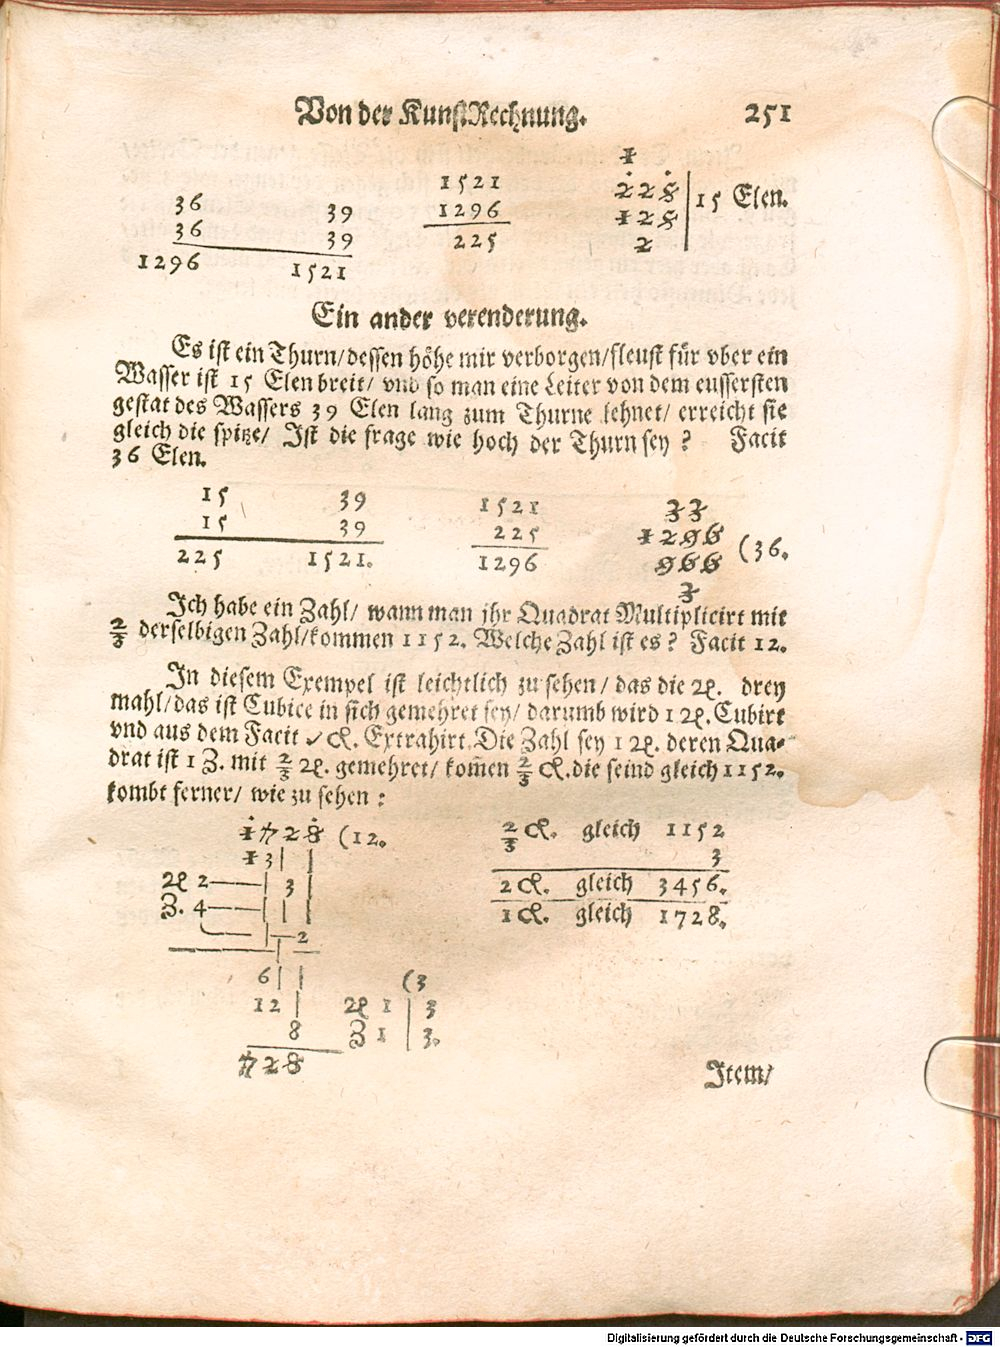 Von der KunstRechnung. 251
36 39 1521 1
36 39 1296 228 | 15 Elen.
1296 1521 225 125
2
Ein ander verenderung.
Es ist ein Thurn/dessen höhe mir verborgen/fleust für vber ein
Wasser ist 15 Elen breit/ vnd so man eine Leiter von dem eussersten
gestat des Wassers 39 Elen lang zum Thurne lehnet/ erreicht sie
gleich die spitze/ Ist die frage wie hoch der Thurn sey? Facit
36 Elen.
15 39 1521 33
15 39 225 1296 (36.
225 1521. 1296 966
3
Ich habe ein Zahl/ wann man jhr Quadrat Multiplicirt mit
2/3 derselbigen Zahl/kommen 1152. Welche Zahl ist es? Facit 12.
In diesem Exempel ist leichtlich zu sehen/ das die 2ę. drey
mahl/das ist Cubice in sich gemehret sey/ darumb wird 1 2ę. Cubirt
vnd aus dem Facit √ cſ. Extrahirt. Die Zahl sey 1 2ę. deren Qua-
drat ist 1 Z. mit 2/3 2ę. gemehret/ kom̃en 2/3 cſ. die seind gleich 1152.
kombt ferner/ wie zu sehen:
1728 (12. 2/3 cſ. gleich 1152
13 3
2ę 2 3 2 cſ. gleich 3456.
Z. 4 1 cſ. gleich 1728.
2
6 (3
12 2ę 1 | 3
8 Z 1 | 3.
728
Item/
Digitalisierung gefördert durch die Deutsche Forschungsgemeinschaft - DFG